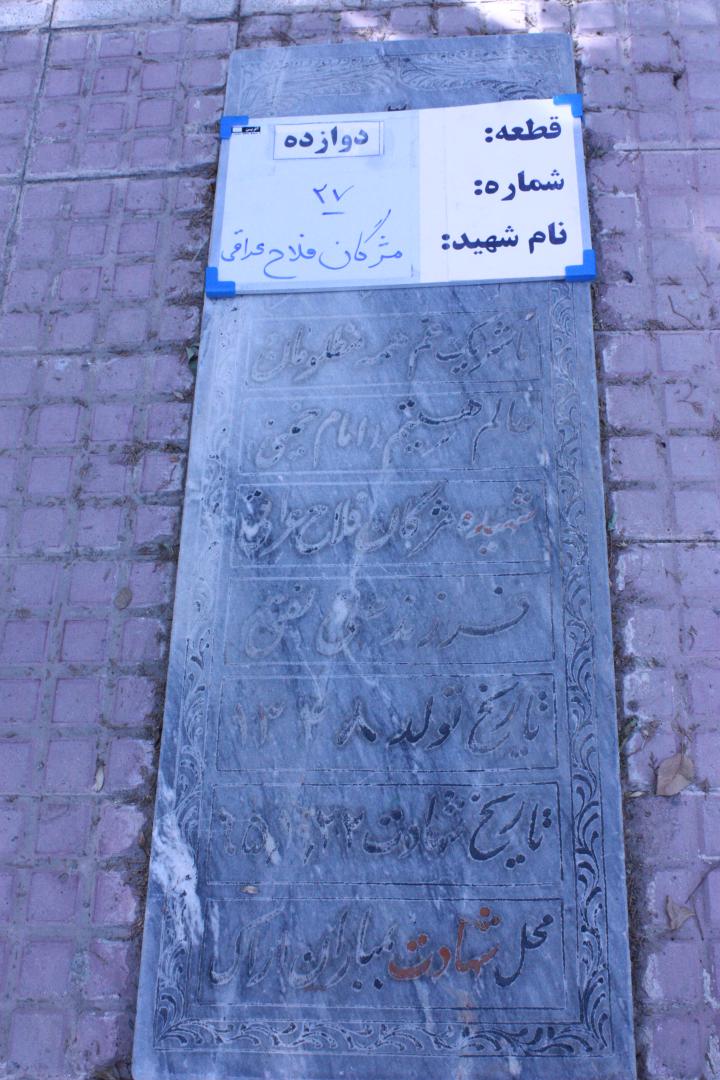 قطعه: دوازده
شماره: ۲۷
نام شهید: مژگان فلاح عراقی
ما شریک غم همه مظلومان
عالم هستیم (امام خمینی
شهیده مژگان فلاح عراقی
فرزند
تاریخ تولد ۱۳۴۸
تاریخ شهادت ۶۵،۱،۲۲
محل شهادت بمباران اراک